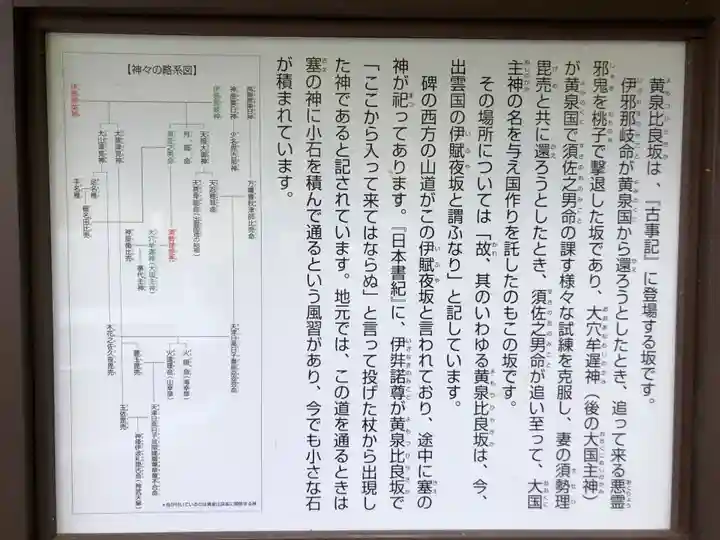 黄泉比良坂は、『古事記』に登場する坂です。
伊邪那岐命が黄泉国から還ろうとしたとき、追って来る悪霊
邪鬼を桃子で撃退した坂であり、大穴牟遅神（後の大国主神）
が黄泉国で須佐之男命の課す様々な試練を克服し、妻の須勢理
毘売と共に還ろうとしたとき、須佐之男命が追い至って、大国
主神の名を与え国作りを託したのもこの坂です。
その場所については「故、其のいわゆる黄泉比良坂は、今、
出雲国の伊賦夜坂と謂ふなり」と記しています。
碑の西方の山道がこの伊賦夜坂と言われており、途中に塞の
神が祀ってあります。『日本書紀』に、伊弉諾尊が黄泉比良坂で
「ここから入って来てはならぬ」と言って投げた杖から出現し
た神であると記されています。地元では、この道を通るときは
塞の神に小石を積んで通るという風習があり、今でも小さな石
が積まれています。
【神々の略系図】
天照大御神
月読命
大山津見神
足名椎
手名椎
櫛名田比売
大穴牟遅神（大国主神）
事代主神
木花之佐久夜毘売
豊玉毘売
玉依毘売